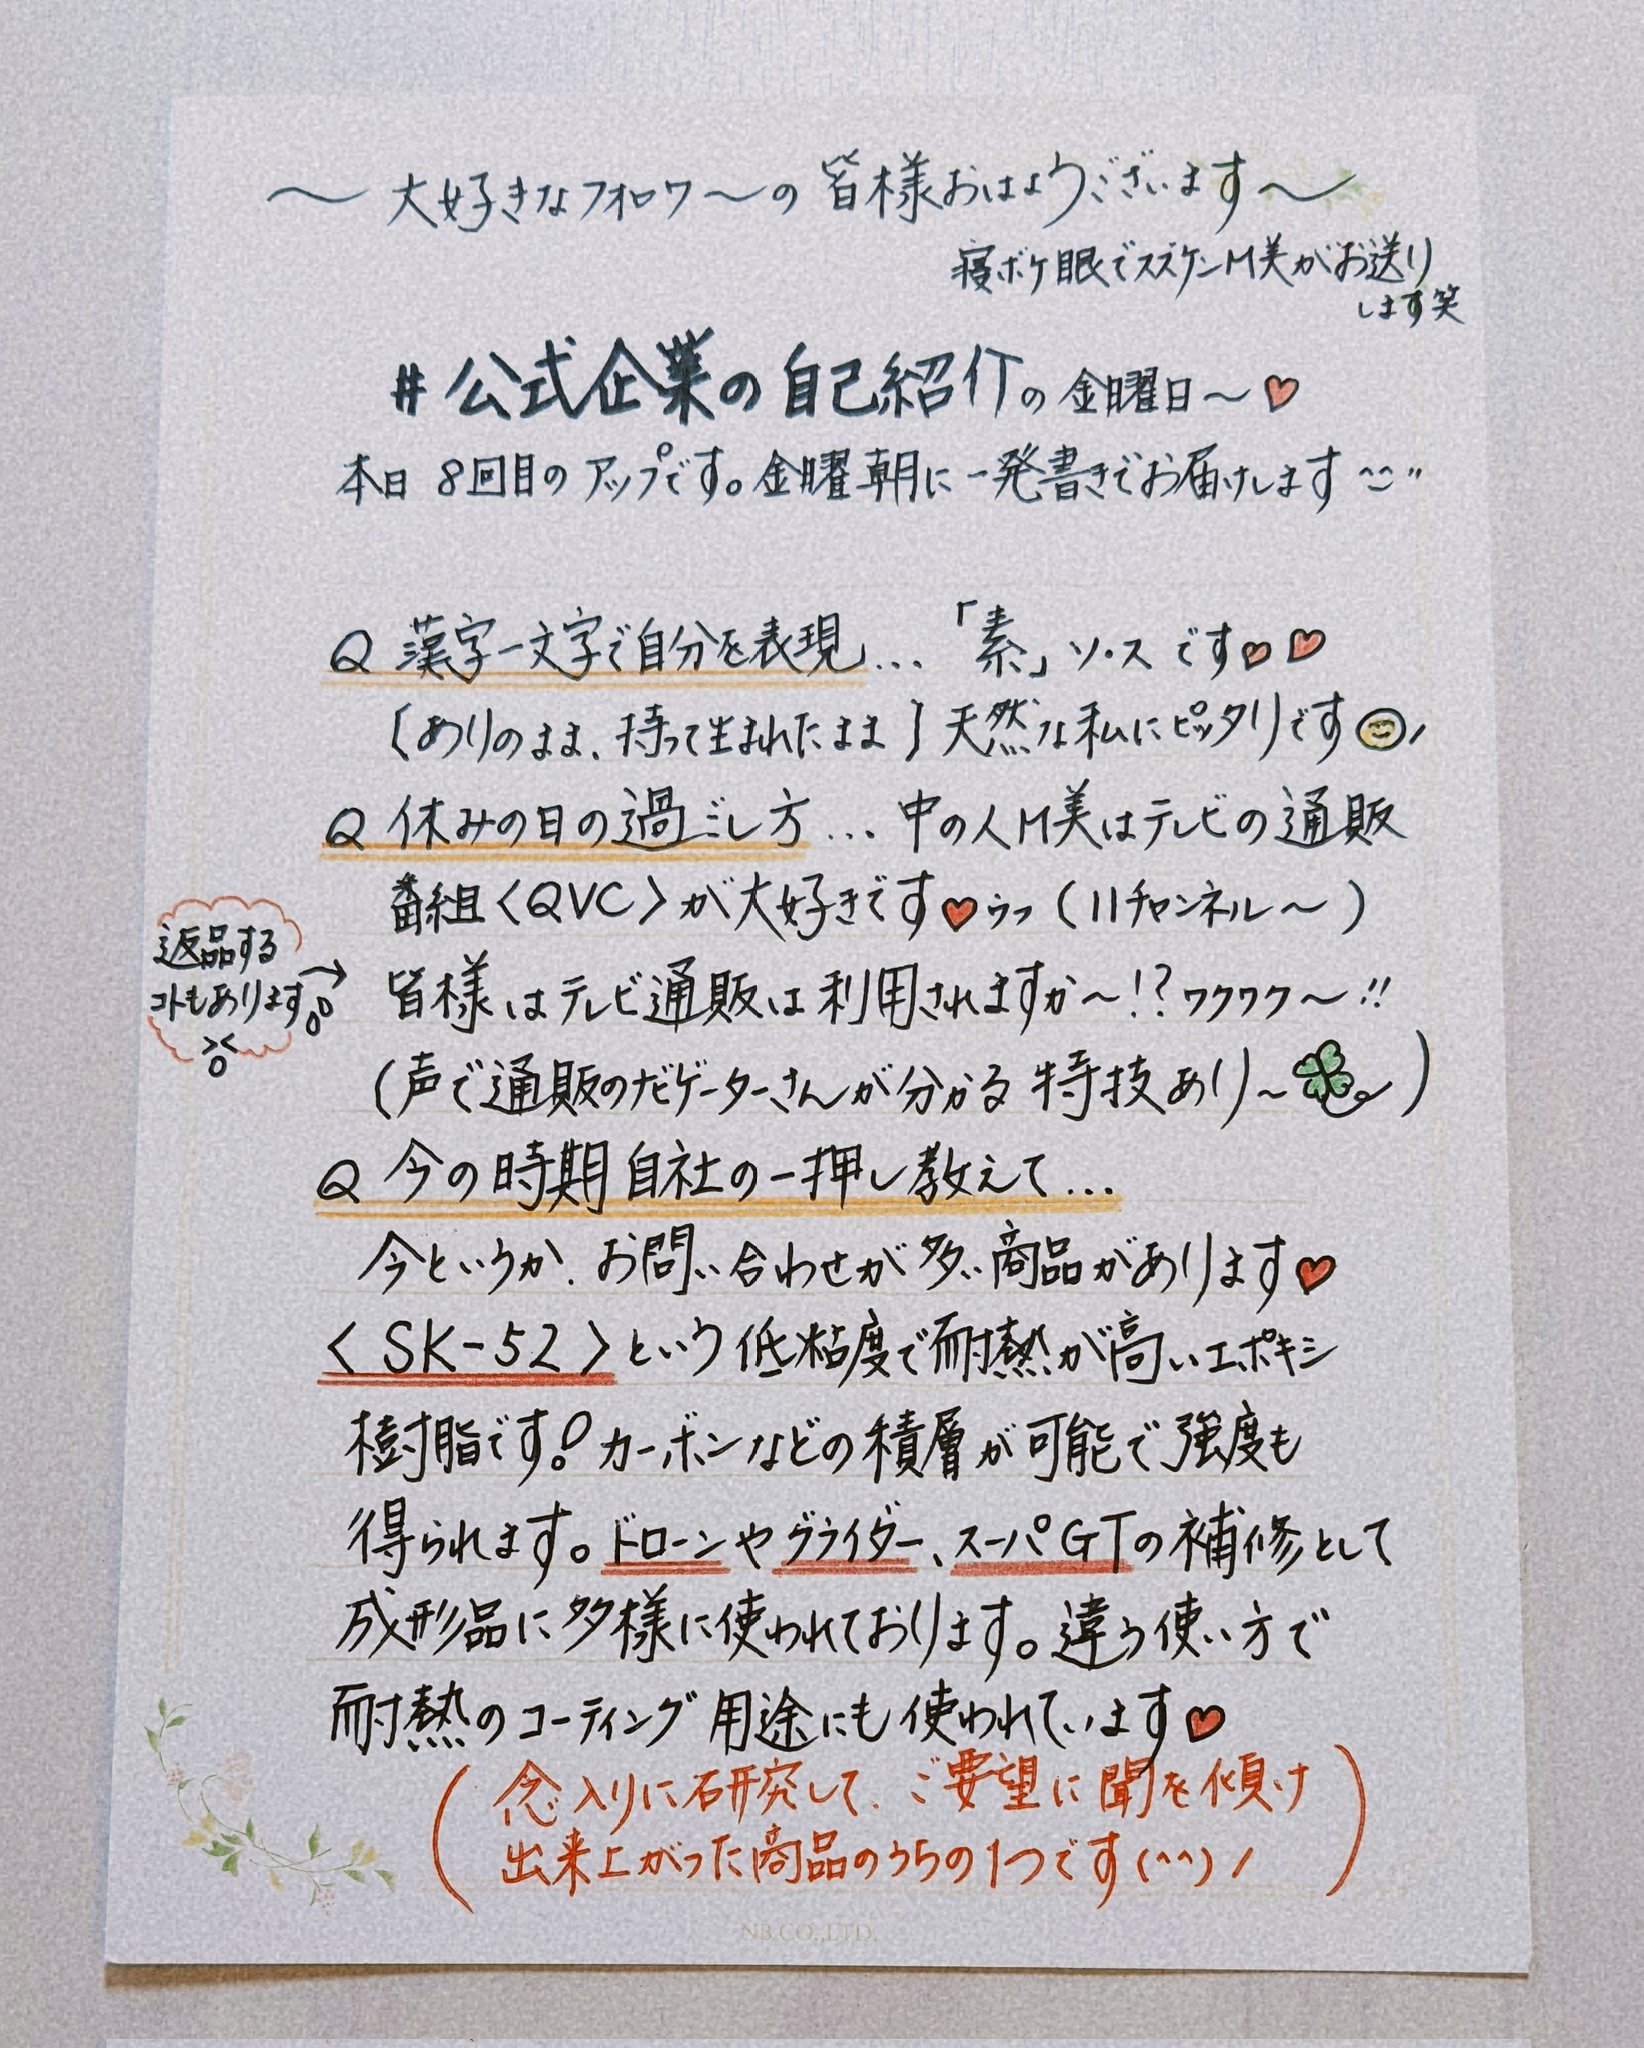 〜大好きなフォロワ〜の皆様おはようございます〜
寝ボケ眼でスズケンM美がお送り
します笑
#公式企業の自己紹介の金曜日〜♡
本日8回目のアップです。金曜朝に一発書きでお届けします^^"
Q 漢字一文字で自分を表現... 「素」ソ・スです♡♡
〔ありのまま、持って生まれたまま〕天然な私にピッタリです
Q 休みの日の過ごし方... 中の人M美はテレビの通販
番組〈QVC〉が大好きです♡ウフ(11チャンネル〜)
返品する
コトもあります
→
><
皆様はテレビ通販は利用されますか〜!?ワクワク〜!!
(声で通販のナビゲーターさんが分かる特技あり〜)
Q 今の時期自社の一押し教えて...
今というか、お問い合わせが多い商品があります♡
〈SK-52〉という低粘度で耐熱が高いエポキシ
樹脂です!カーボンなどの積層が可能で強度も
得られます。ドローンやグライダー、スーパGTの補修として
成形品に多様に使われております。違う使い方で
耐熱のコーティング用途にも使われています♡
(念入りに研究して、ご要望に聞を傾け
出来上がった商品のうちの1つです(^^)ノ)
NB CO.,LTD.